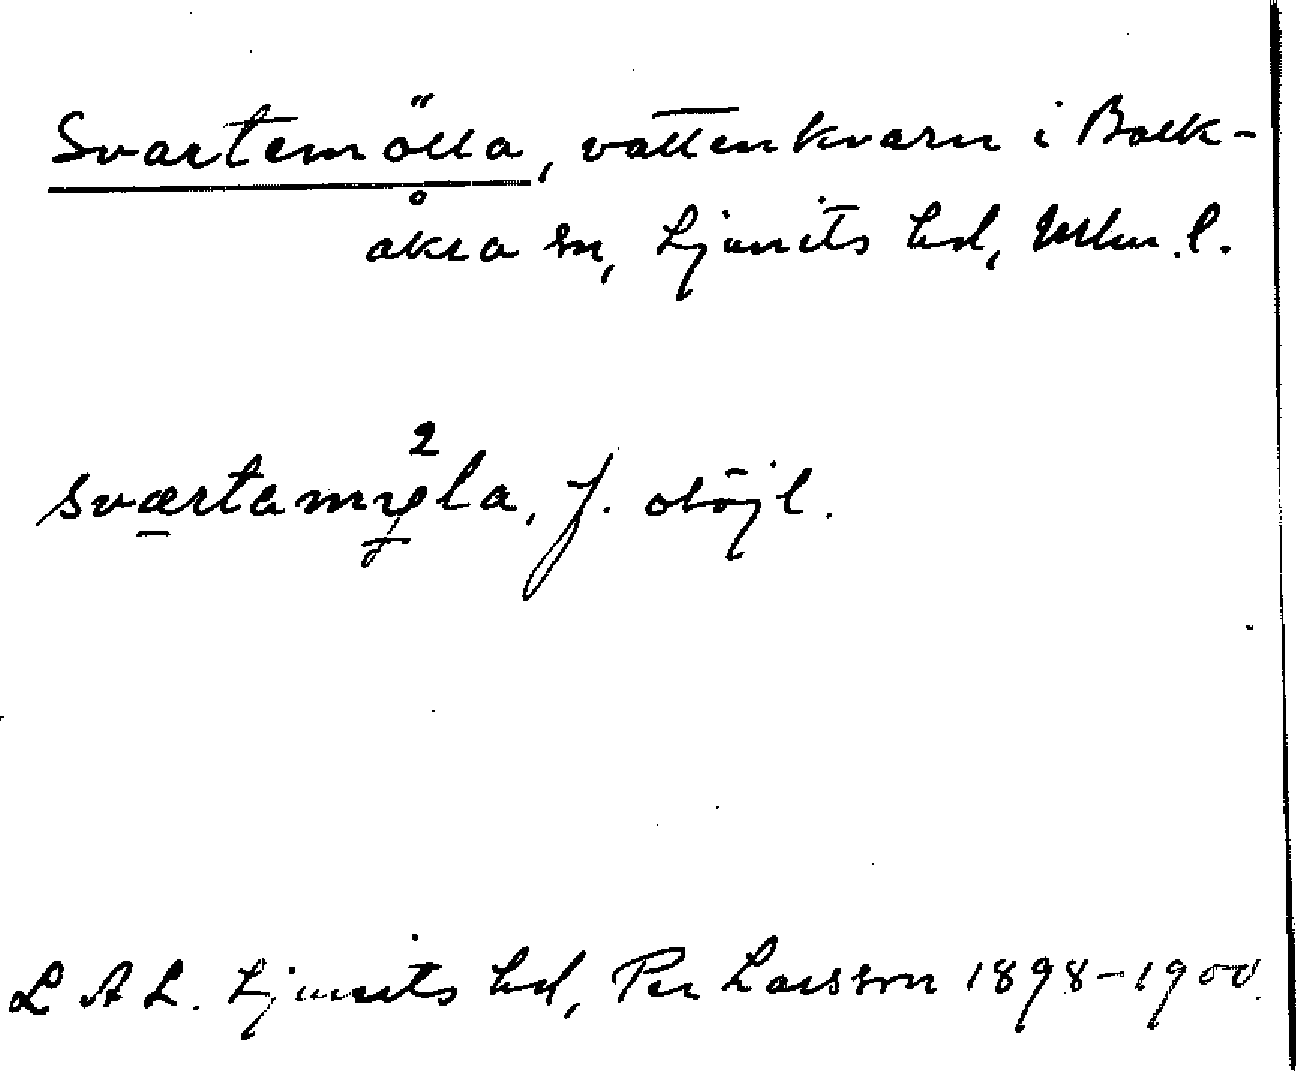 Svartemölla, vattenkvarn i Balk-
åkra sn, Ljunits hd, Mlm. l.
sværtamøla, f. oböjl.
L A L. Ljunits hd, Per Larsson 1898-1900.